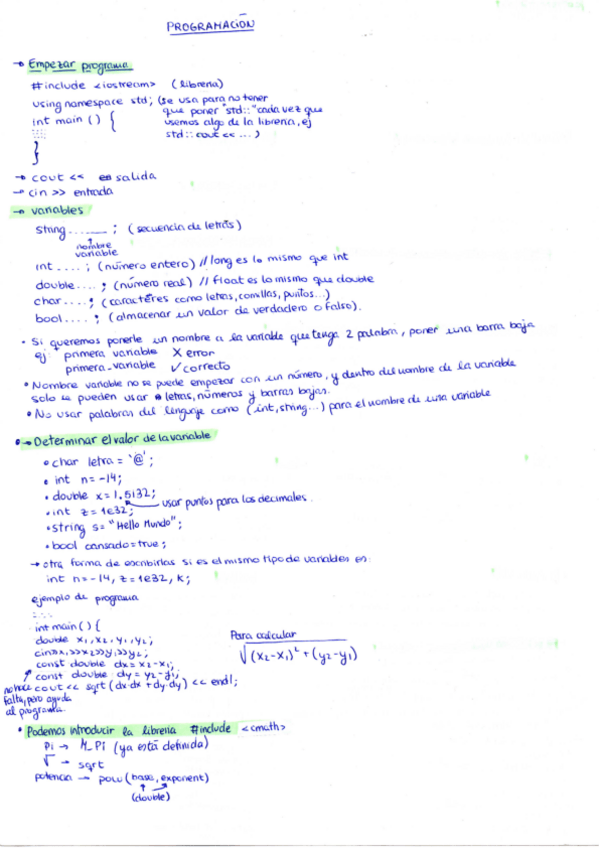 PROGRAMACIÓN
→ Empezar programa
#include <iostream> (librería)
using namespace std; (se usa para no tener
que poner "std::" cada vez que
int main () { usemos algo de la librería, ej
std::cout << ...)
}
→ cout << salida
→ cin >> entrada
→ variables
string ........ ; (secuencia de letras)
nombre
variable
int .... ; (número entero) // long es lo mismo que int
double .... ; (número real) // float es lo mismo que double
char .... ; (caractéres como letras, comillas, puntos...)
bool .... ; (almacenar un valor de verdadero o falso).
• Si queremos ponerle un nombre a la variable que tenga 2 palabra, poner una barra baja
ej: primera variable X error
primera_variable ✓ correcto
• Nombre variable no se puede empezar con un número, y dentro del nombre de la variable
solo se pueden usar letras, números y barras bajas.
• No usar palabras del lenguaje como (int, string...) para el nombre de una variable
→ Determinar el valor de la variable
• char letra = '@';
• int n=-14;
• double x = 1.5132;
usar puntos para los decimales.
• int z = 1e32;
• string s= "Hello Mundo";
• bool cansado = true;
→ otra forma de escribirlas si es el mismo tipo de variables es:
int n=-14, z=1e32, k;
ejemplo de programa
int main () {
double x1, x2, y1, y2;
cin>>x1>>x2>>y1>>y2;
const double dx = x2-x1;
const double dy = y2-y1;
cout << sqrt (dx·dx + dy·dy) << endl;
no hace
falta, pero ayuda
al programa.
Para calcular
√(x2-x1)² + (y2-y1)
• Podemos introducir la libreria #include <cmath>
Pi → M_Pi (ya está definida)
√ → sqrt
potencia → pow (base, exponent)
(double)